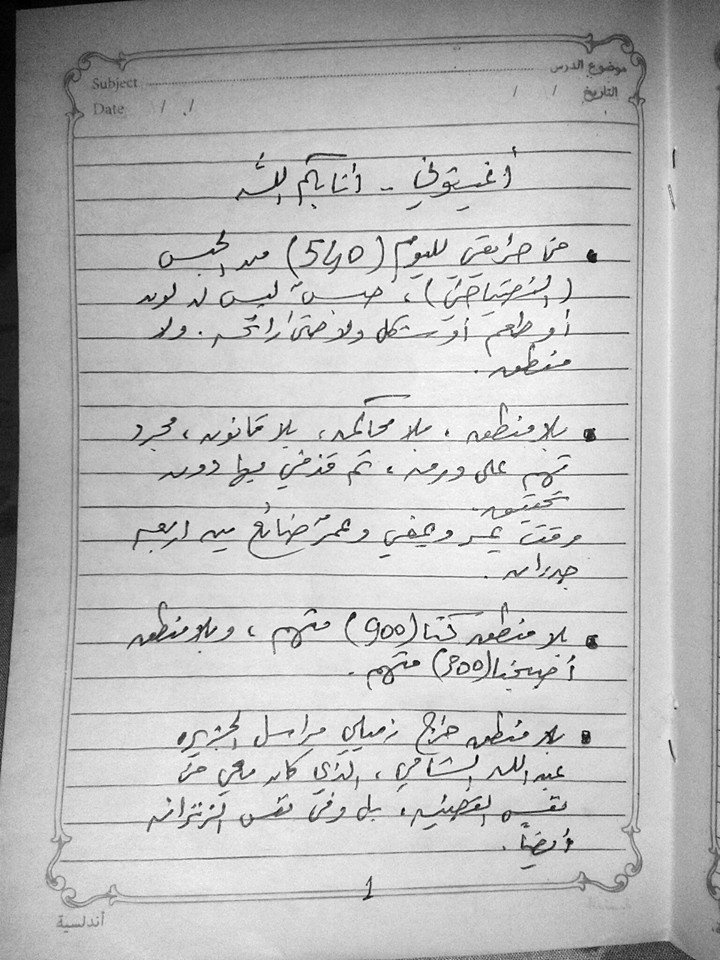 Subject موضوع الدرس
Date / / / / التاريخ
أغيثوني - أثابكم الله
في طريقي لليوم (540) من الحبس
(الإحتياطي)، حبسٌ ليس له لون
أو طعم أو شكل ولا حتى رائحه. ولا
منطق.
بلا منطق، بلا محاكمه، بلا قانون، مجرد
تهم على ورق، تم قذفي بها دون
تحقيق.
وقت يمر ويمضي وعمرٌ ضائع بين اربعه
جدران.
بلا منطق كنا (900) متهم، وبلا منطق
أصبحنا (300) متهم.
بلا منطق خرج زميلي مراسل الجزيره
عبد الله الشامي، الذي كان معي في
نفس القضيه، بل وفي نفس الزنزانه
أيضاً.
1
أندلسية